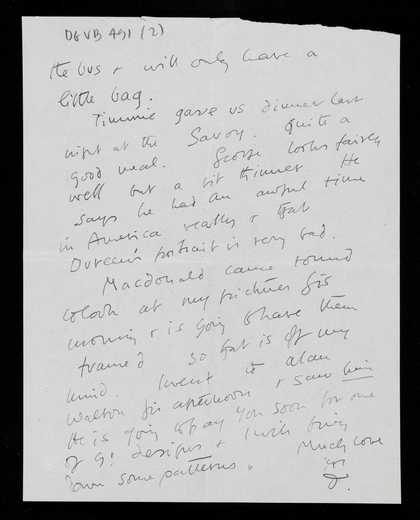 DGVB 491 (2)
the bus + will only have a
little bag.
Timmie gave us dinner last
night at the Savoy. Quite a
good meal. George looks fairly
well but a bit thinner He
says he had an awful time
in America really + that
portrait is very bad.
Macdonald came round
to look at my pictures this
morning + is going to have them
framed so that is off my
mind. I went to Alan
Walton this afternoon + saw him
He is going to pay you soon for one
of yr designs + I will bring
down some patterns. Much love
yr
D.